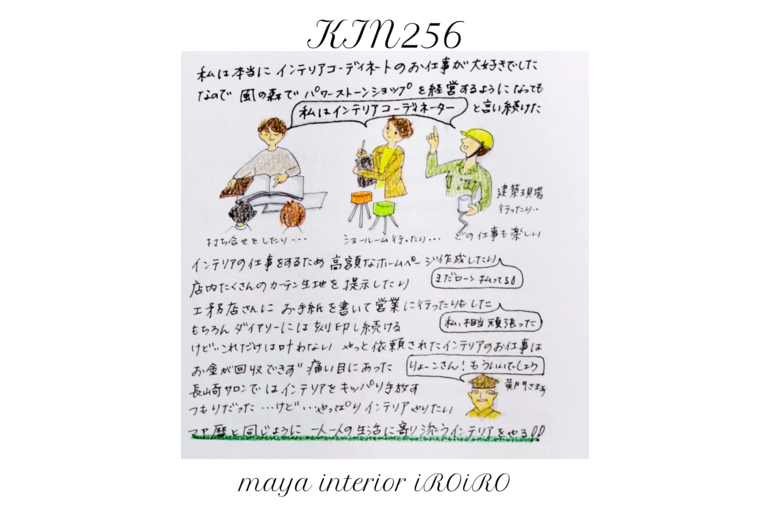 KIN256
私は本当に インテリアコーディネートのお仕事が大好きでした
なので 風の森で パワーストーンショップ を経営するようになっても
私はインテリアコーディネーター
と言い続けた
建築現場
行ったり・・
打ち合せをしたり・・・
ショールーム行ったり・・・
どの仕事も楽しい
インテリアの仕事をするため 高額なホームページ作成したり
まだローン払ってる!!
店内たくさんのカーテン生地を提示したり
工務店さんに お手紙を書いて営業に行ったりもした
私、相当頑張った
もちろんダイアリーには刻印し続ける
けど…これだけは叶わない やっと依頼されたインテリアのお仕事は
お金が回収できず 痛い目にあった
りょーこさん!もういいでしょう
長崎サロンではインテリアをキッパリ手放す
黄門さまぁ
つもりだった…けど…やっぱり インテリアやりたい
マヤ暦と同じように 一人一人の生活に寄り添うインテリアをやる!!
maya interior iROiRO